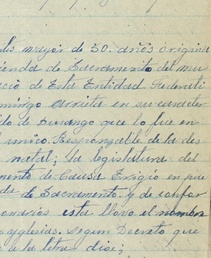 des mayor de 50. años origina
ienda de Sacramento del mu
icio de Esta Entidad Federati
omingo Arrieta en su caracter
do de Durango que lo fue en
unico. Responsable de la des
la legislatura del
mento de Causa Exigio en pue
de Sacramento. y de confor
esta lleva el nombre
yglesias. Segun Decreto que
a la letra dise;